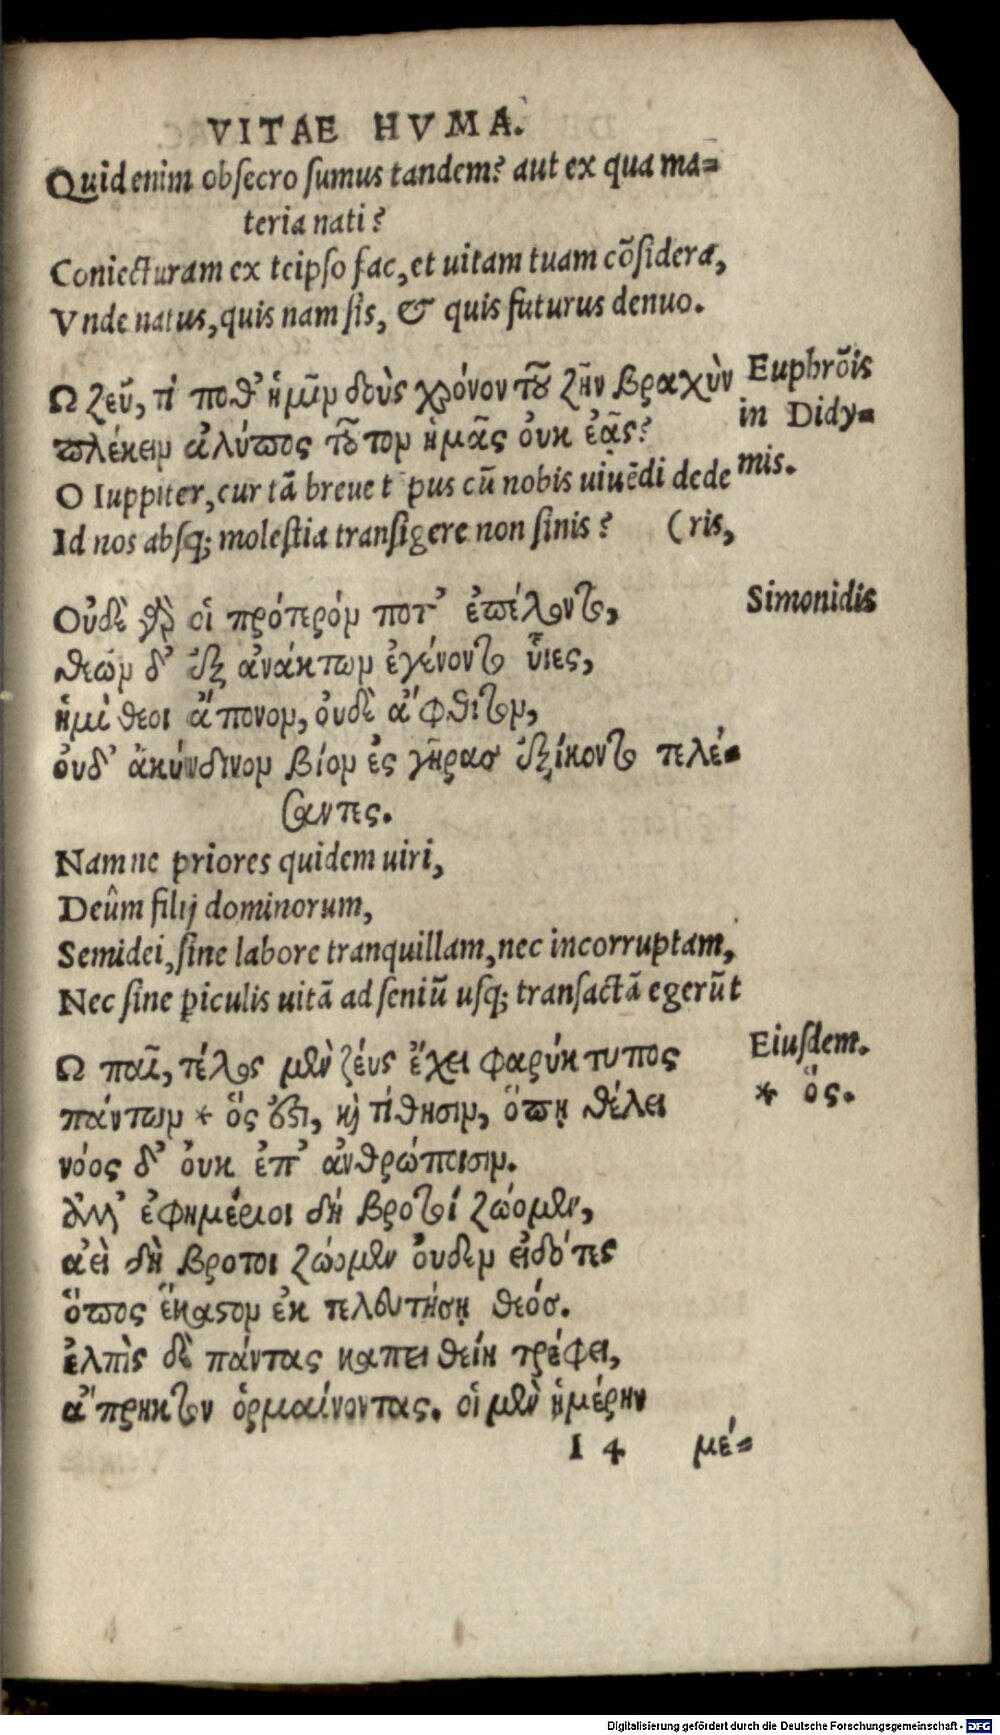 VITAE HVMA.
Quid enim obsecro sumus tandem? aut ex qua ma=
teria nati?
Coniecturam ex teipso fac, et uitam tuam cõsidera,
Vnde natus, quis nam sis, & quis futurus denuo.
Ω ζεῦ, τί ποθ' ἡμῖν δοὺς χρόνον τοῦ ζῆν βραχὺν
πλέκειν ἀλύπως τοῦτον ἡμᾶς οὐκ ἐᾷς?
Euphrõis
in Didy=
mis.
O Iuppiter, cur tã breue t pus cũ nobis uiuẽdi dede
Id nos absq; molestia transigere non sinis? (ris,
Οὐδὲ γὰρ οἳ πρότερόν ποτ' ἐπέλοντο,
Simonidis
θεῶν δ' ἐξ ἀνάκτων ἐγένοντο ὗιες,
ἡμίθεοι ἄπονον, οὐδὲ ἄφθιτον,
οὐδ' ἀκίνδυνον βίον ἐς γῆρας ἐξίκοντο τελέ=
σαντες.
Nam ne priores quidem uiri,
Deûm filij dominorum,
Semidei, sine labore tranquillam, nec incorruptam,
Nec sine periculis uitã ad seniũ usq; transactã egerũt
Ω παῖ, τέλος μὲν ζεὺς ἔχει φαρύκτυπος
Eiusdem.
πάντων * ὃς ἐστι, καὶ τίθησιν, ὅπῃ θέλει
* ὅς.
νόος δ' οὐκ ἐπ' ἀνθρώποισιν.
ἀλλ' ἐφημέριοι δὴ βροτοί ζώομεν,
αἰεὶ δὴ βροτοι ζώομεν οὐδὲν εἰδότες
ὅπως ἕκαστον ἐκ τελευτήσῃ θεός.
ἐλπὶς δὲ πάντας καπειθείη τρέφει,
ἄπρηκτον ὁρμαίνοντας. οἱ μὲν ἡμέρην
I 4 μέ=
Digitalisierung gefördert durch die Deutsche Forschungsgemeinschaft - DFG